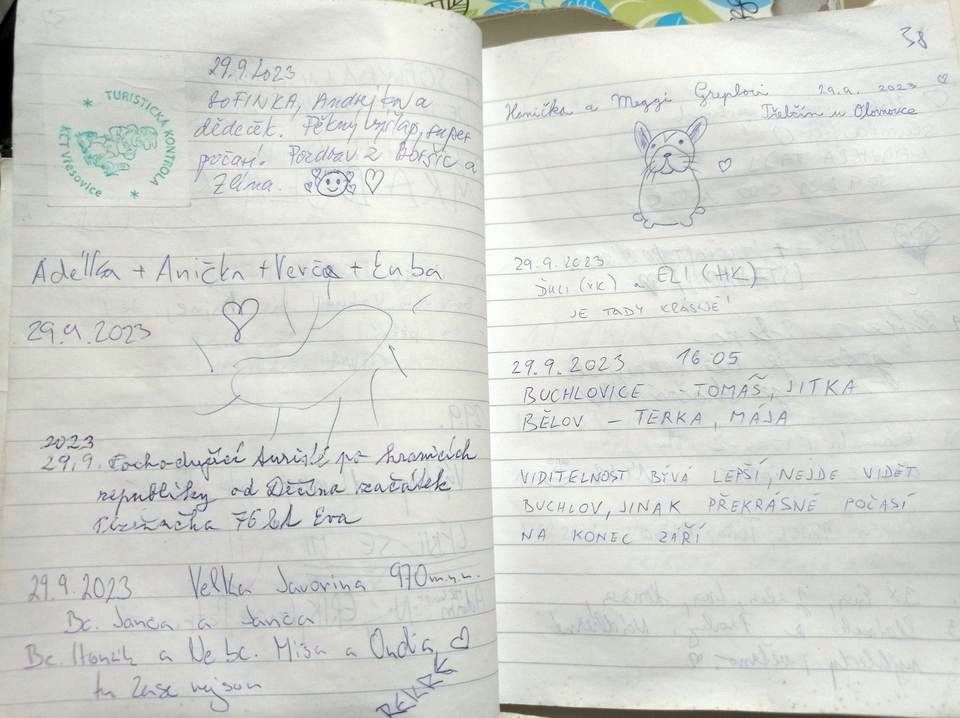 TURISTICKÁ KONTROLA
KČT Vřesovice
29.9.2023
SOFINKA, Andrejka a
dědeček. Pěkný výšlap, super
počasí. Pozdrav z Boršic a
Zlína.
Adélka + Anička + Verča + Luba
29.9.2023
2023
29.9. Pochodující turisté po hranicích
republiky od Děčína začátek
76 Eva
29.9.2023 Velka Javorina 970 m.n.m.
Bc. Janča a Janča
Bc. Honzík a Ne bc. Misa a Ondia,
tu zase nejsou
38
Hanička a Meggi Greplovi 29.9.2023
Třebčín u Olomouce
29.9.2023
DUCI (HK) a ELI (HK)
JE TADY KRÁSNĚ!
29.9.2023 16 05
BUCHLOVICE - TOMÁŠ, JITKA
BĚLOV - TERKA, MÁJA
VIDITELNOST BÝVÁ LEPŠÍ, NEJDE VIDĚT
BUCHLOV, JINAK PŘEKRÁSNÉ POČASÍ
NA KONEC ZÁŘÍ